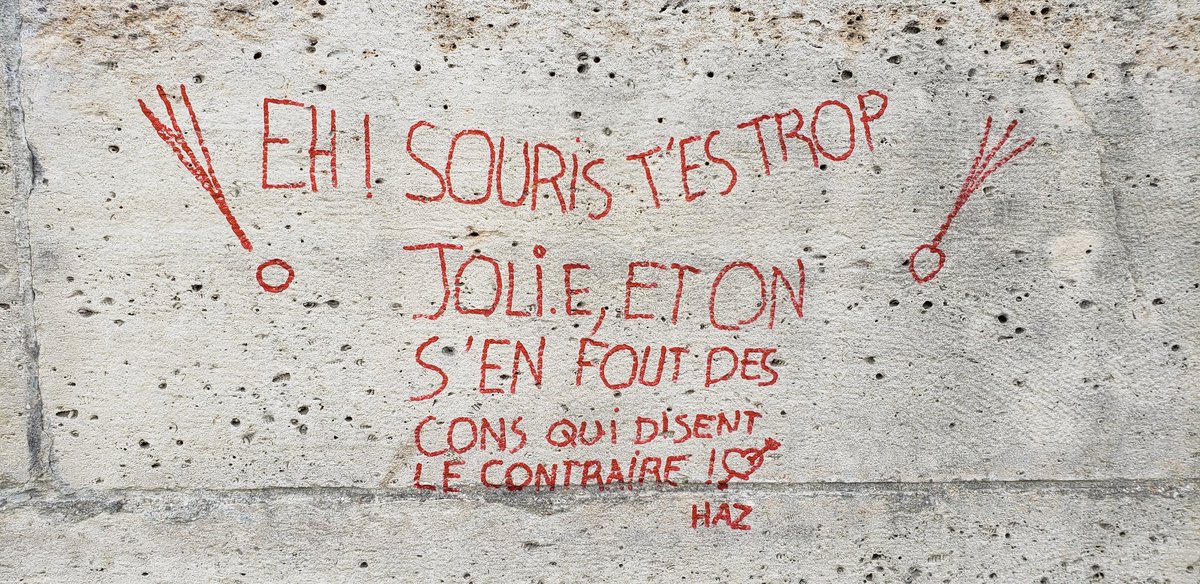 EH! SOURIS T'ES TROP
JOLIE, ET ON
S'EN FOUT DES
CONS QUI DISENT
LE CONTRAIRE !
HAZ